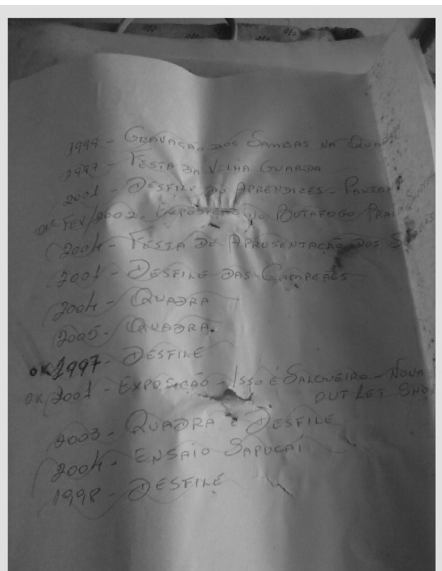 1997 - GRAVAÇÃO DOS SAMBAS NA QUADRA
1997 - FESTA DA VELHA GUARDA
2001 - DESFILE DO APRENDIZES -
OK FEV/2002 - EXPOSIÇÃO NO BOTAFOGO PRAIA
2004 - FESTA DE APRESENTAÇÃO DOS
2001 - DESFILE DAS CAMPEÃS
2004 - QUADRA
2005 - QUADRA.
OK 1997 - DESFILE
OK/2001 - EXPOSIÇÃO - ISSO É SALGUEIRO - NOVA
OUTLET SHO
2003 - QUADRA E DESFILE
2004 - ENSAIO SAPUCAÍ
1998 - DESFILE